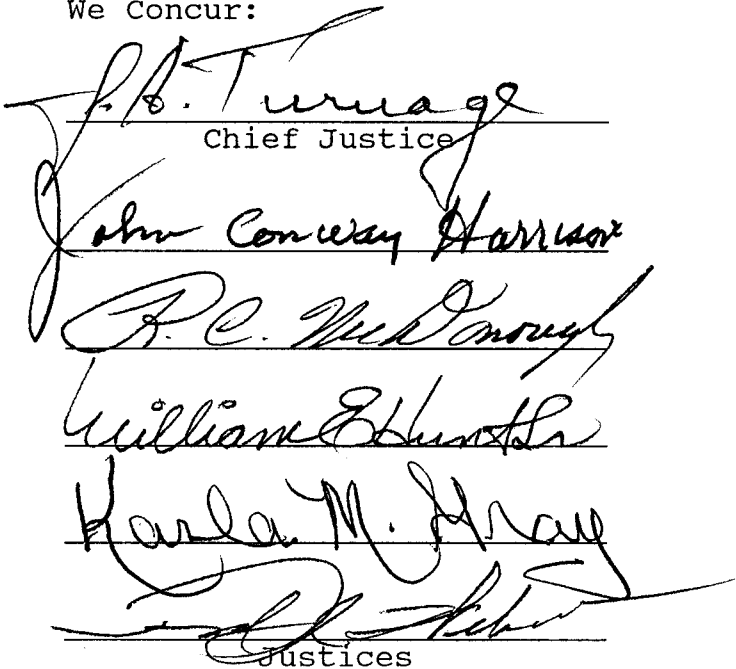 We Concur:
J. A. Turnage
Chief Justice
John Conway Harrison
R. C. McDonough
William E Hunt Sr
Karla M. Gray
Justices